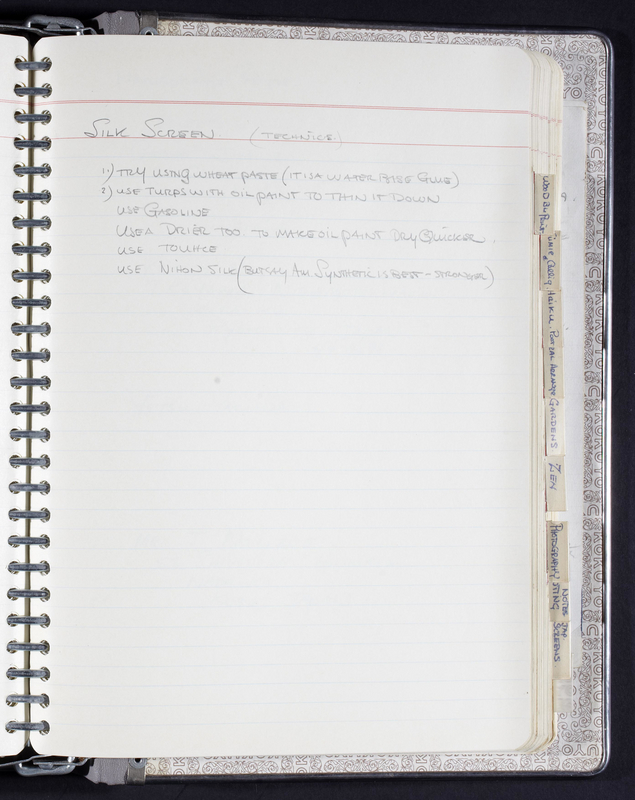 SILK SCREEN (TECHNICS)
1.) TRY USING WHEAT PASTE (IT IS A WATER BASE GLUE)
2) USE TURPS WITH OIL PAINT TO THIN IT DOWN
USE GASOLINE
USE A DRIER TOO TO MAKE OIL PAINT DRY QUICKER.
USE
USE NIHON SILK (BUT SAY AM. SYNTHETIC IS BEST - STRONGER)
GARDENS
ZEN
PHOTOGRAPHY
NOTES JAP.
SCREENS
KOKUYO